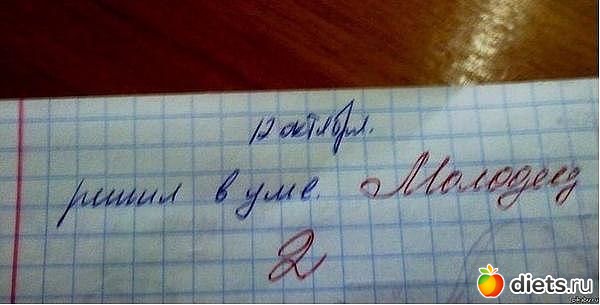 12 октября.
решил в уме. Молодец
2
diets.ru